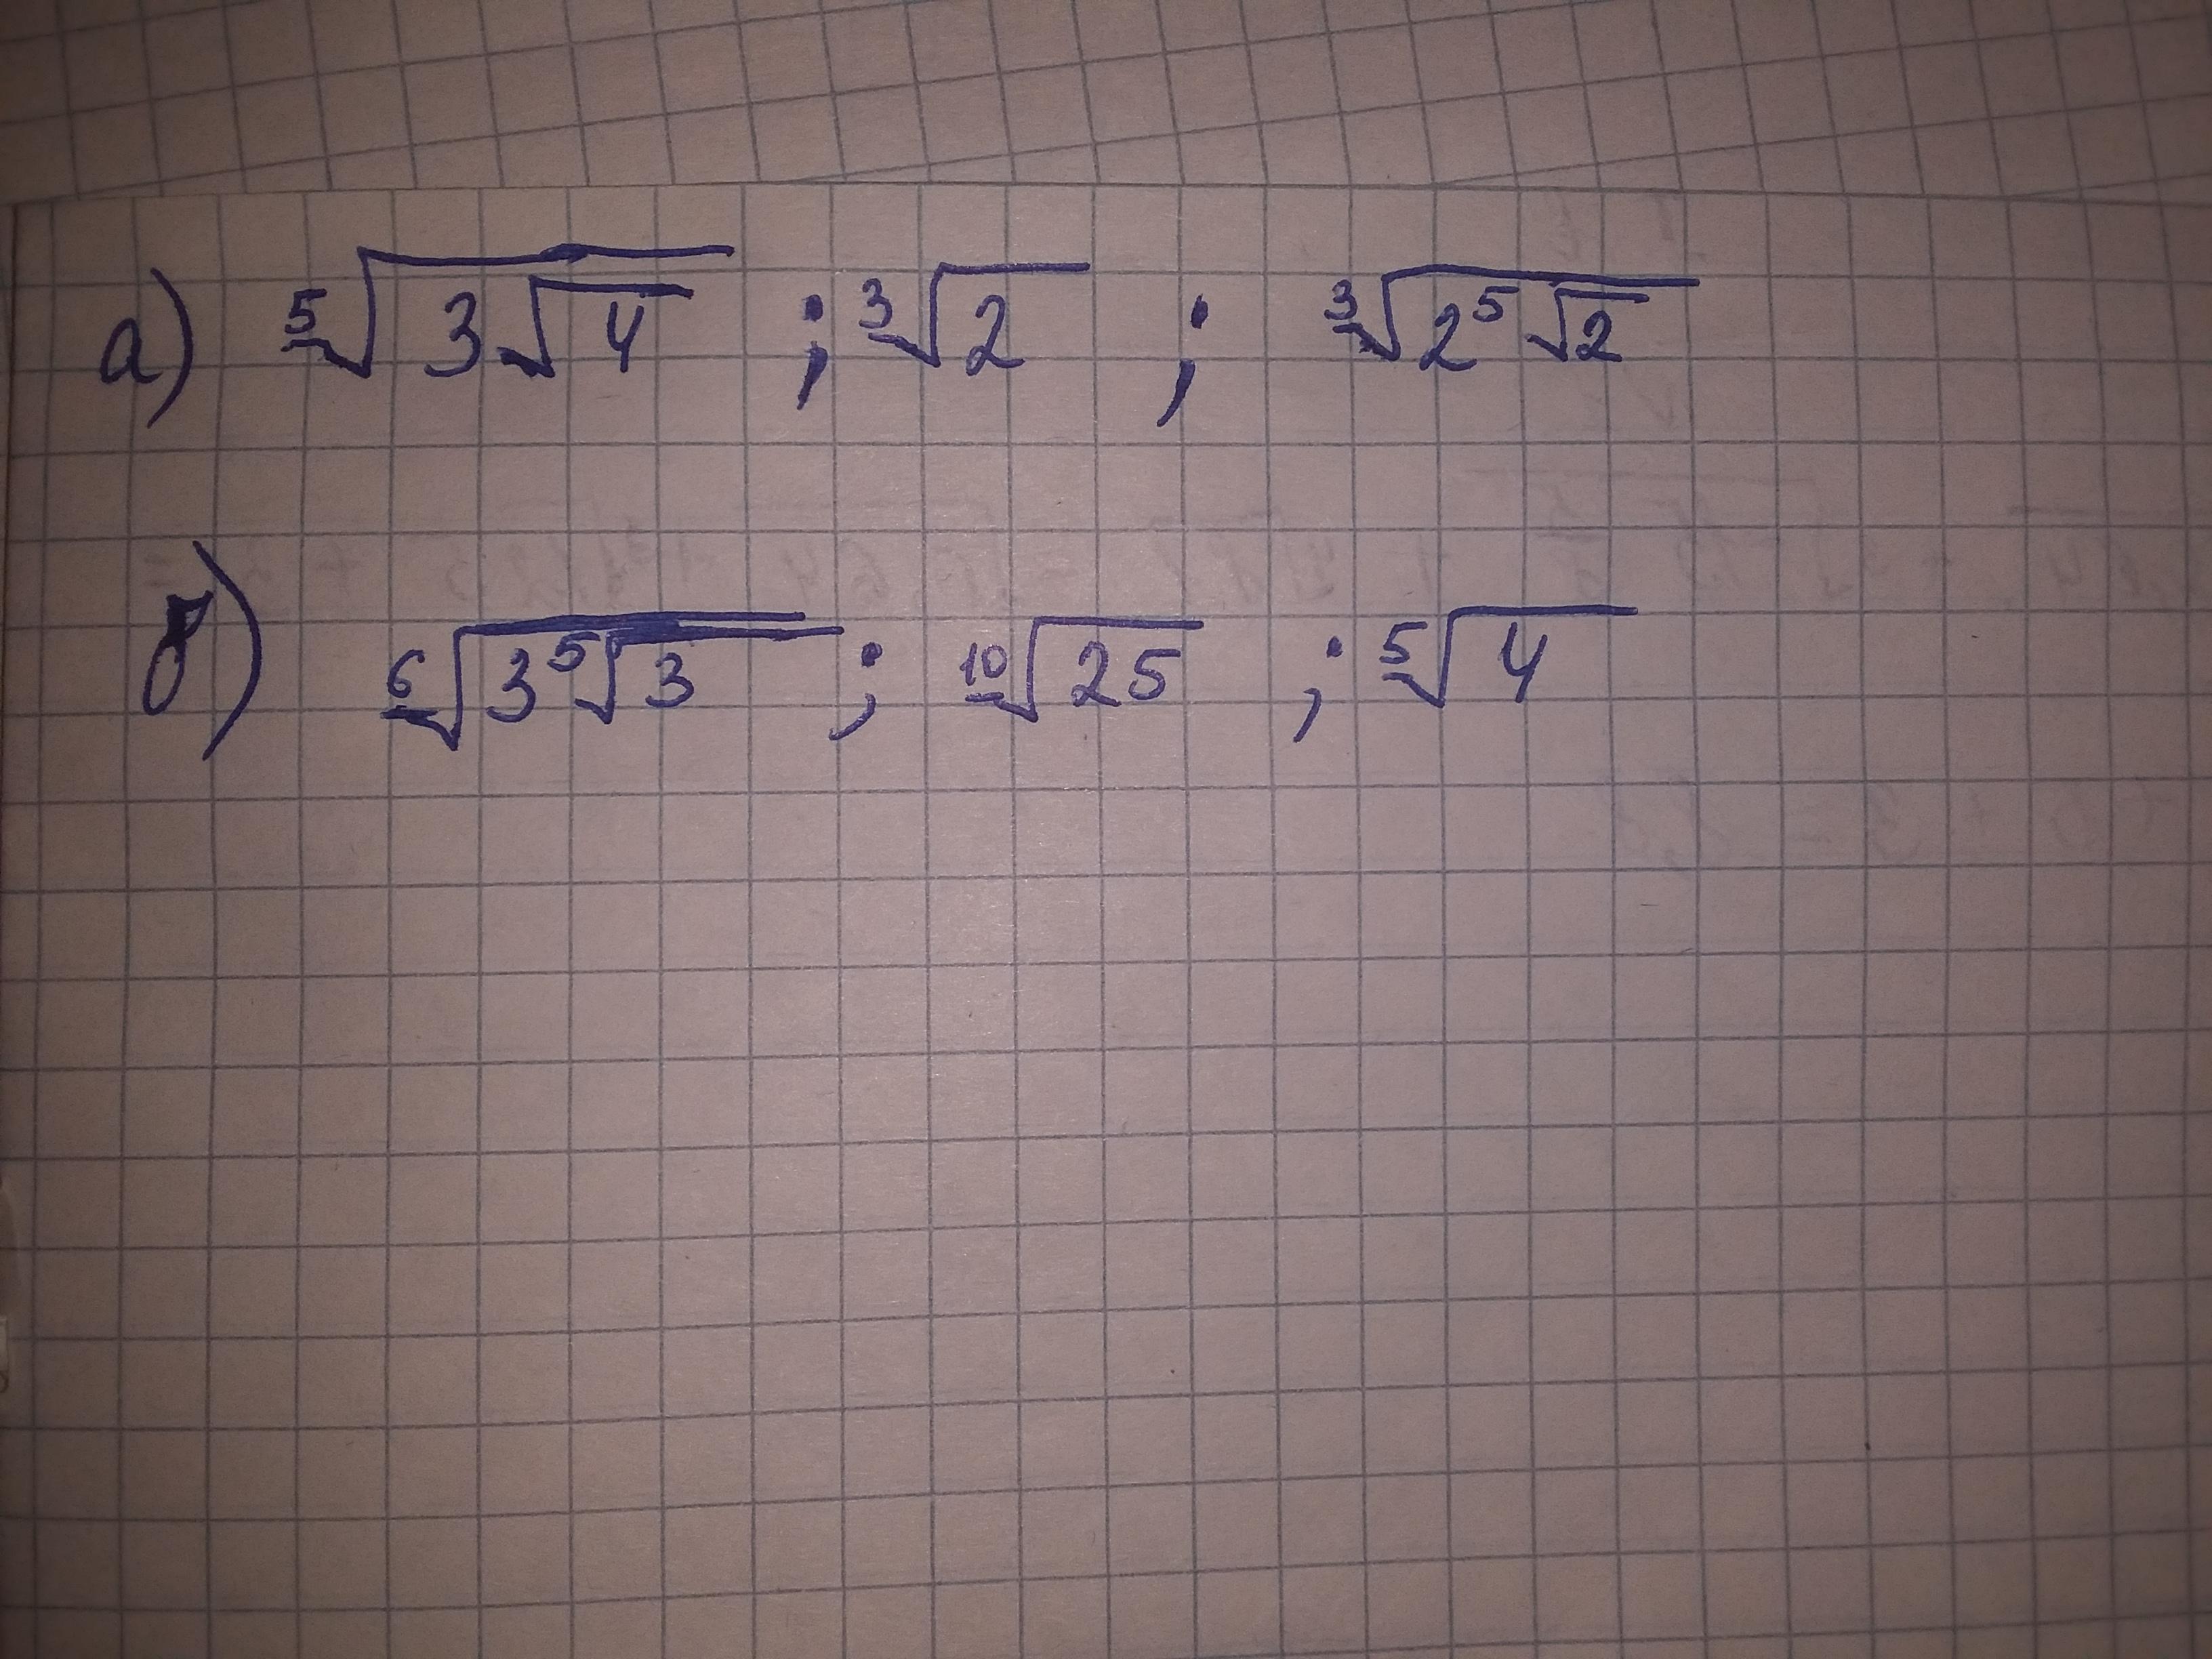 а) ⁵√(3√4) ; ³√2 ; ³√(2⁵√2)
б) ⁶√(3⁵√3) ; ¹⁰√25 ; ⁵√4